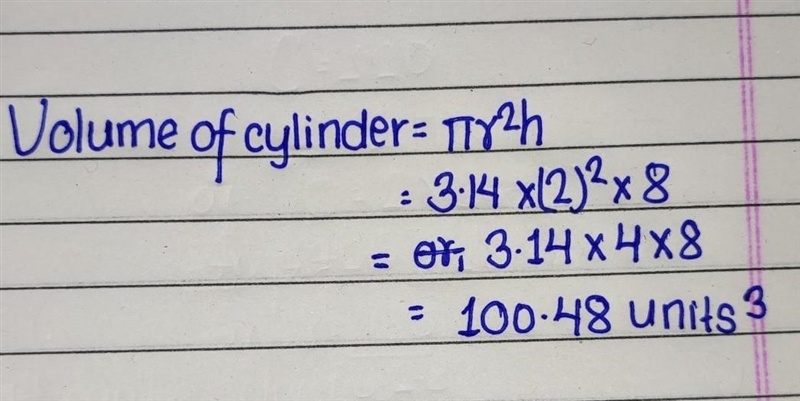 Volume of cylinder = πr²h
= 3.14 × (2)² × 8
= or, 3.14 × 4 × 8
= 100.48 units³